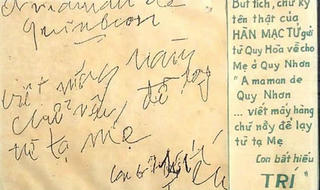 A maman de
Quinhơn
viết mấy hàng
chữ nầy để lạy
từ tạ mẹ
Con bất hiếu
Trí
Bút tích, chữ ký
tên thật của
HÀN MẠC TỬ gửi
từ Quy Hoà về cho
Mẹ ở Quy Nhơn
"A maman de
Quy Nhơn
... viết mấy hàng
chữ nầy để lạy
từ tạ Mẹ
Con bất hiếu
TRÍ "